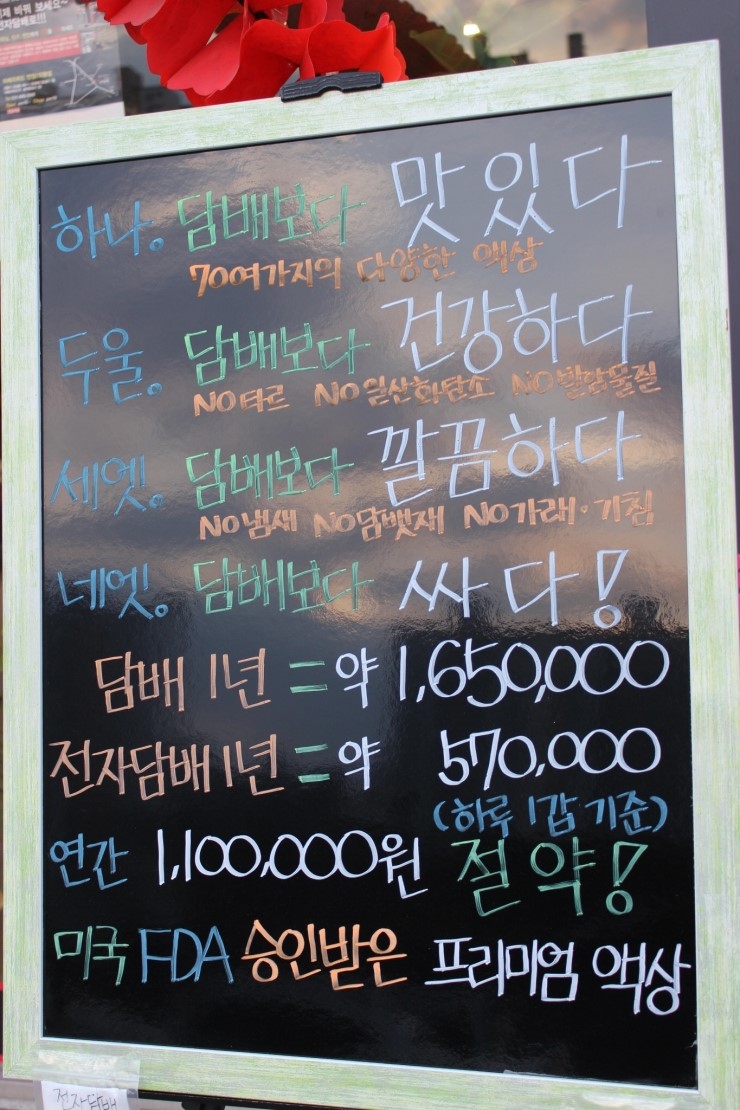 바꿔 보세요~
전자담배로!!!
하나. 담배보다 맛있다
70여가지의 다양한 액상
두울. 담배보다 건강하다
NO타르 NO일산화탄소 NO발암물질
세엣. 담배보다 깔끔하다
NO냄새 NO담뱃재 NO가래·기침
네엣. 담배보다 싸다!
담배 1년 = 약 1,650,000
전자담배1년 = 약 570,000
(하루 1갑 기준)
연간 1,100,000원 절약!
미국 FDA 승인받은 프리미엄 액상
전자담배